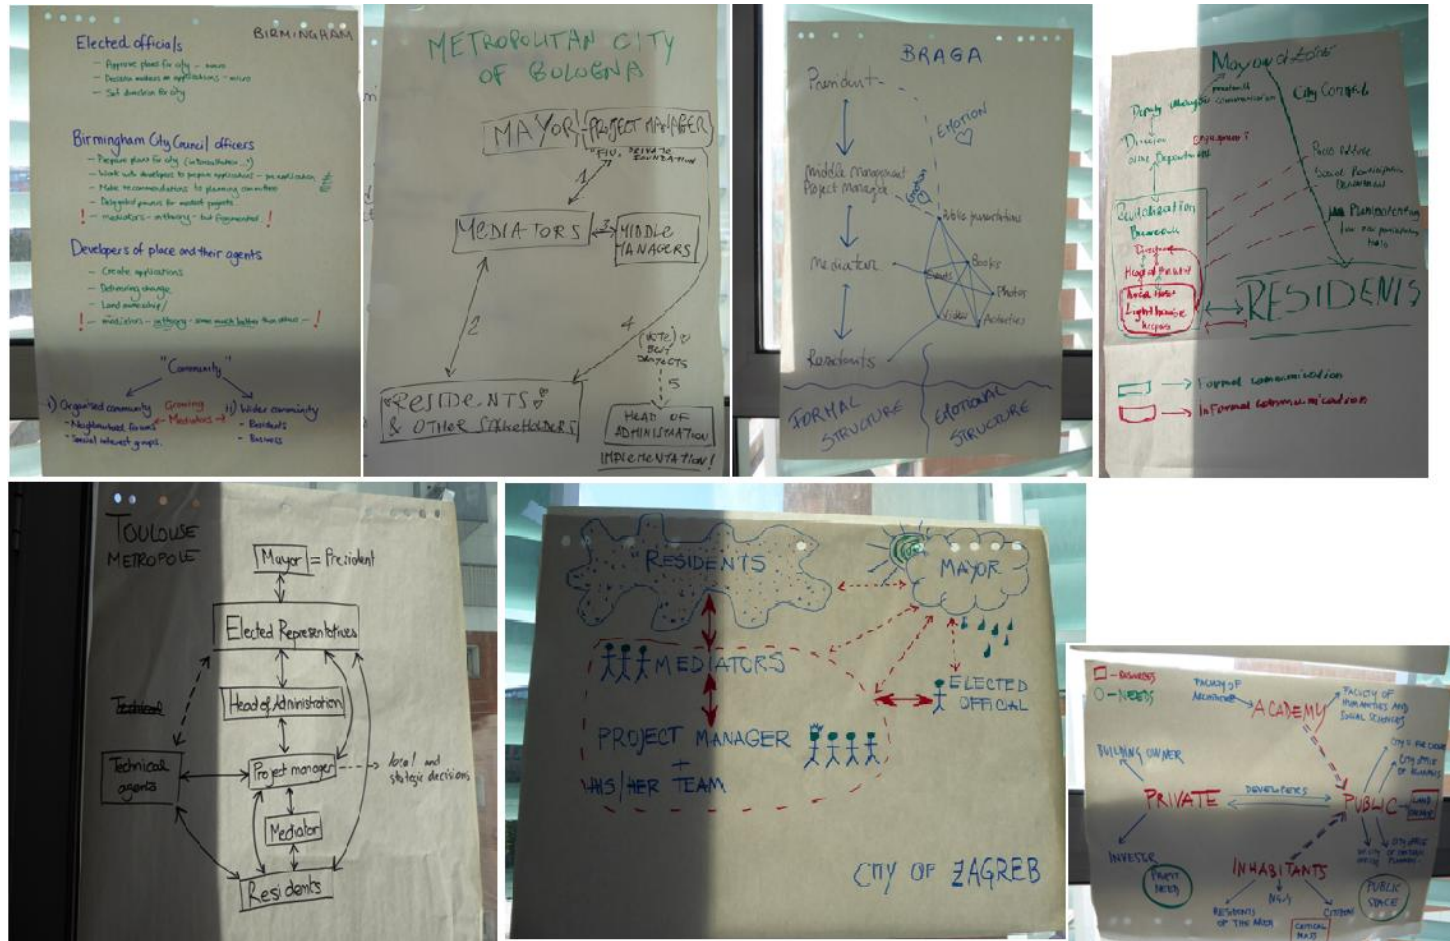 BIRMINGHAM
Elected officials
- Approve plans for city - macro
- Decision makers on applications - micro
- Set direction for city
Birmingham City Council officers
- Prepare plans for city
- Work with developers to prepare applications - pre application
- Make recommendations to planning committee
- Delegated powers for modest projects
! - mediators - in theory - but fragmented !
Developers of place and their agents
- Create applications
- Delivering change
- Land ownership/
! - mediators - in theory - some much better than others - !
"Community"
i) Organised community
- Neighbourhood forums
- Special interest groups.
Growing
Mediators
ii) Wider community
- Residents
- Business
METROPOLITAN CITY
OF BOLOGNA
MAYOR
PROJECT MANAGER
"FIU, PRIVATE
FOUNDATION
1
MEDIATORS
3
MIDDLE
MANAGERS
2
4
(VOTE)
BEST
PROJECTS
5
RESIDENTS
& OTHER STAKEHOLDERS
HEAD OF
ADMINISTRATION
IMPLEMENTATION!
BRAGA
President
EMOTION
Middle Management
Project Manager
Public presentations
Mediator
Events
Books
Photos
Video
Activities
Residents
FORMAL
STRUCTURE
EMOTIONAL
STRUCTURE
Mayor of Łódź
Deputy Mayor
communication
City Council
Director
of the Department
Revitalization
Head of the unit
Area Host
Lighthouse
keeper
RESIDENTS
Formal communication
Informal communication
TOULOUSE
METROPOLE
Mayor = President
Elected Representatives
Head of Administration
Technical
Technical
agents
Project manager
local and
strategic decisions
Mediator
Residents
RESIDENTS
MAYOR
MEDIATORS
ELECTED
OFFICIAL
PROJECT MANAGER
+
HIS/HER TEAM
CITY OF ZAGREB
- RESOURCES
- NEEDS
FACULTY OF
ARCHITECTURE
ACADEMY
FACULTY OF
HUMANITIES AND
SOCIAL SCIENCES
BUILDING OWNER
PRIVATE
DEVELOPERS
PUBLIC
INVESTOR
PROFIT
NEED
INHABITANTS
NGOs
RESIDENTS
OF THE AREA
CITIZENS
CRITICAL
MASS
PUBLIC
SPACE